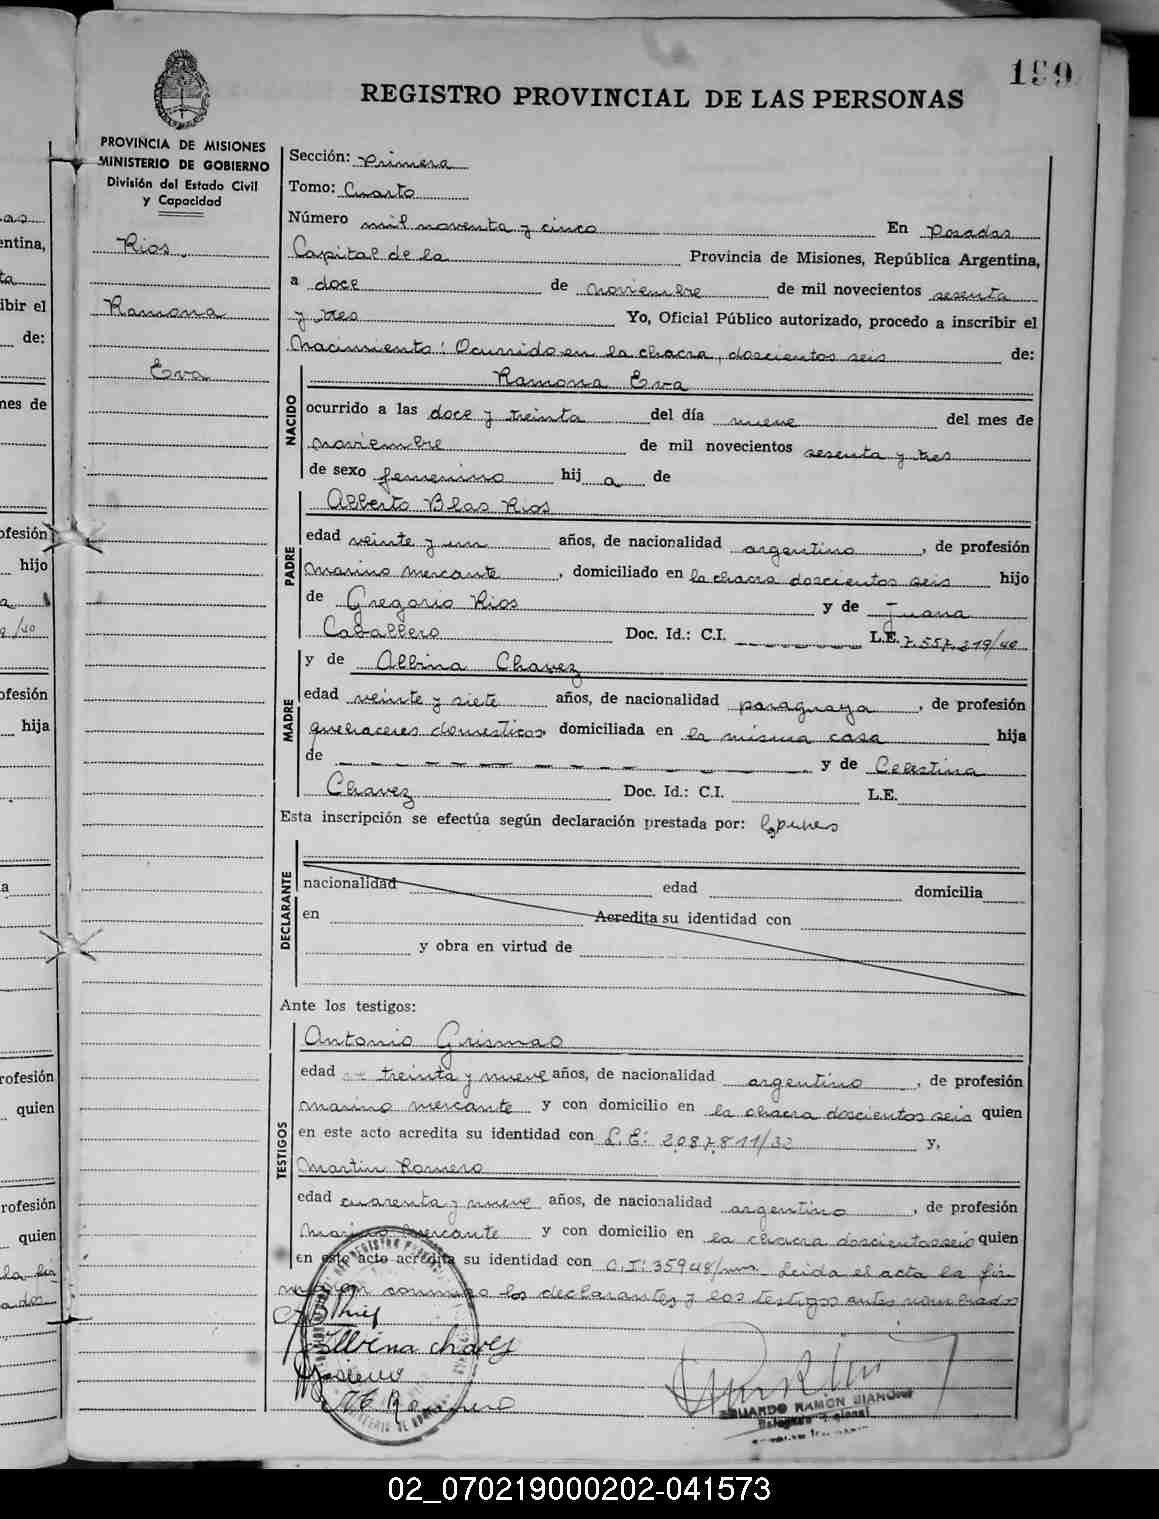 199
REGISTRO PROVINCIAL DE LAS PERSONAS
PROVINCIA DE MISIONES
MINISTERIO DE GOBIERNO
División del Estado Civil
y Capacidad
Rios
Ramona
Eva
Sección: Primera
Tomo: Cuarto
Número mil noventa y cinco En Posadas
Capital de la Provincia de Misiones, República Argentina,
a doce de noviembre de mil novecientos sesenta
y tres Yo, Oficial Público autorizado, procedo a inscribir el
Nacimiento: Ocurrido en la chacra, doscientos seis de:
NACIDO
Ramona Eva
ocurrido a las doce y treinta del día nueve del mes de
noviembre de mil novecientos sesenta y tres
de sexo femenino hij a de
PADRE
Alberto Blas Rios
edad veinte y un años, de nacionalidad argentino, de profesión
marino mercante, domiciliado en la chacra doscientos seis hijo
de Gregorio Rios y de Juana
Caballero Doc. Id.: C.I. L.E. 7.557.319/40
MADRE
y de Albina Chavez
edad veinte y siete años, de nacionalidad paraguaya, de profesión
quehaceres domesticos, domiciliada en la misma casa hija
de y de Celestina
Chavez Doc. Id.: C.I. L.E.
Esta inscripción se efectúa según declaración prestada por:
DECLARANTE
nacionalidad edad domicilia
en Acredita su identidad con
y obra en virtud de
Ante los testigos:
TESTIGOS
Antonio Grismao
edad treinta y nueve años, de nacionalidad argentino, de profesión
marino mercante y con domicilio en la chacra doscientos seis quien
en este acto acredita su identidad con L.E: 2.087.811/32 y,
Martin Romero
edad cuarenta y nueve años, de nacionalidad argentino, de profesión
marino mercante y con domicilio en la chacra doscientos seis quien
en este acto acredita su identidad con C.I: 35948/ Leida el acta la fir
maron conmigo los declarantes y los testigos antes nombrados
Albina chavez
EDUARDO RAMON BIANCHI
02_070219000202-041573